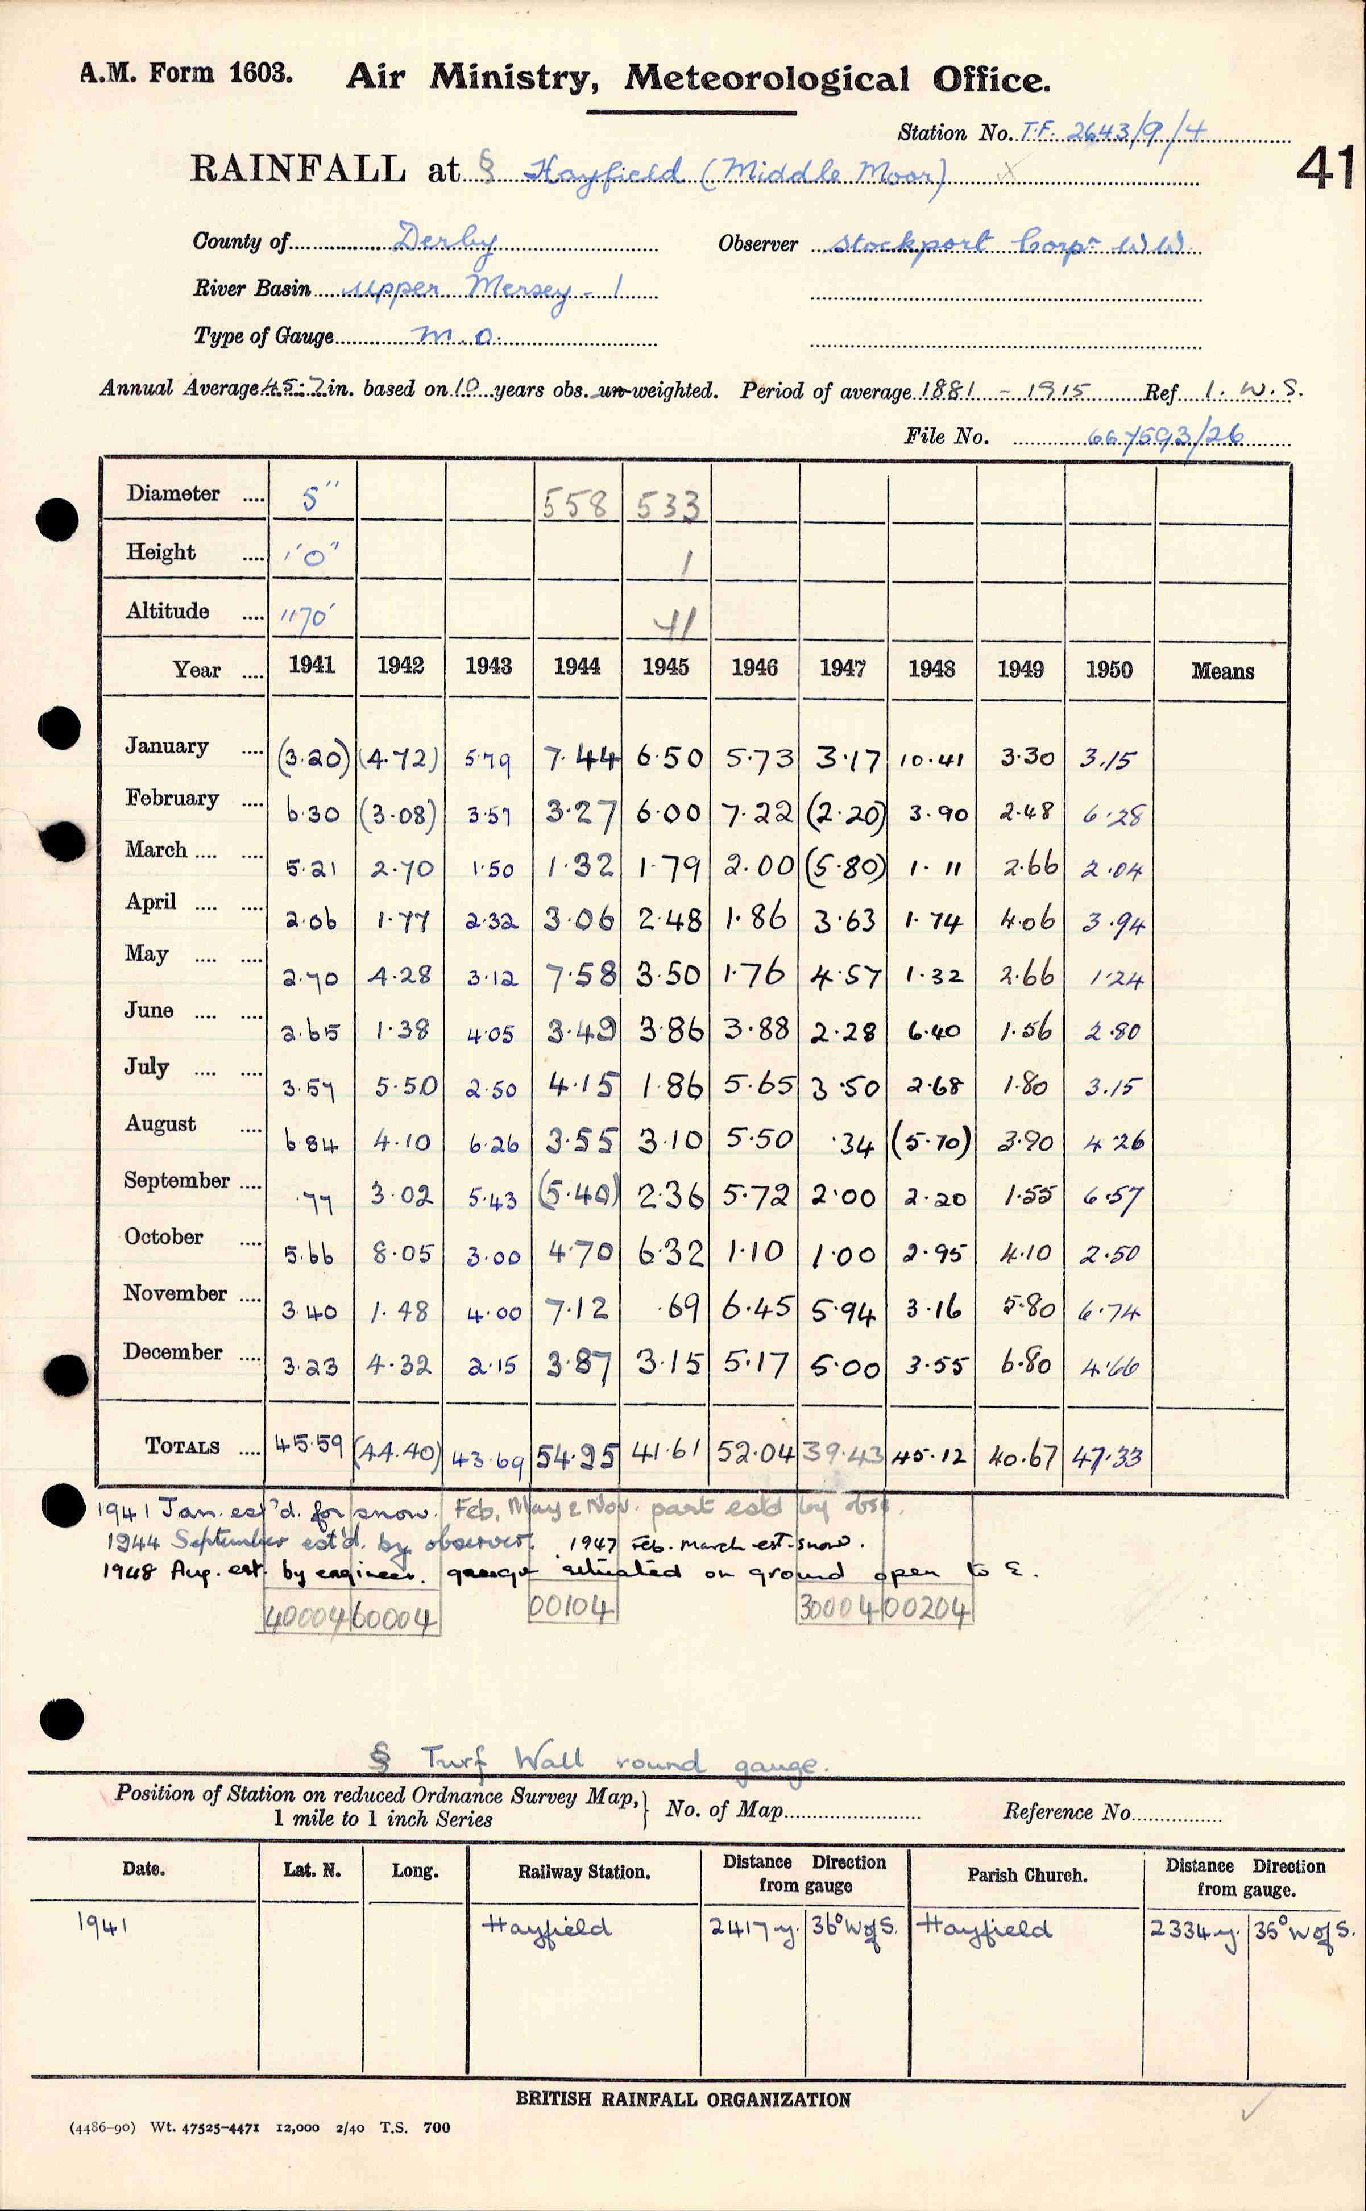 A.M. Form 1603. Air Ministry, Meteorological Office.
Station No. T.F. 2643/9/4
RAINFALL at § Hayfield (Middle Moor) X
41
County of Derby Observer Stockport Corpn W.W.
River Basin Upper Mersey - 1
Type of Gauge M.O.
Annual Average 45.7 in. based on 10 years obs. un-weighted. Period of average 1881 - 1915 Ref 1. W.S.
File No. 667593/26
Diameter .... 5" 558 533
Height .... 1'0" 1
Altitude .... 1170' 41
Year .... 1941 1942 1943 1944 1945 1946 1947 1948 1949 1950 Means
January .... (3.20) (4.72) 5.79 7.44 6.50 5.73 3.17 10.41 3.30 3.15
February .... 6.30 (3.08) 3.57 3.27 6.00 7.22 (2.20) 3.90 2.48 6.28
March .... .... 5.21 2.70 1.50 1.32 1.79 2.00 (5.80) 1.11 2.66 2.04
April .... .... 2.06 1.77 2.32 3.06 2.48 1.86 3.63 1.74 4.06 3.94
May .... .... 2.70 4.28 3.12 7.58 3.50 1.76 4.57 1.32 2.66 1.24
June .... .... 2.65 1.38 4.05 3.49 3.86 3.88 2.28 6.40 1.56 2.80
July .... .... 3.57 5.50 2.50 4.15 1.86 5.65 3.50 2.68 1.80 3.15
August .... 6.84 4.10 6.26 3.55 3.10 5.50 .34 (5.70) 3.90 4.26
September .... .77 3.02 5.43 (5.40) 2.36 5.72 2.00 2.20 1.55 6.57
October .... 5.66 8.05 3.00 4.70 6.32 1.10 1.00 2.95 4.10 2.50
November .... 3.40 1.48 4.00 7.12 .69 6.45 5.94 3.16 5.80 6.74
December .... 3.23 4.32 2.15 3.87 3.15 5.17 5.00 3.55 6.80 4.66
TOTALS .... 45.59 (44.40) 43.69 54.95 41.61 52.04 39.43 45.12 40.67 47.33
1941 Jan. est'd. for snow. Feb, May & Nov. part estd by obsr.
1944 September est'd. by observer. 1947 Feb. March est. snow.
1948 Aug. est. by engineer. gauge situated on ground open to E.
40004 60004 00104 30004 00204
§ Turf Wall round gauge.
Position of Station on reduced Ordnance Survey Map, 1 mile to 1 inch Series } No. of Map Reference No.
Date. Lat. N. Long. Railway Station. Distance Direction from gauge Parish Church. Distance Direction from gauge.
1941 Hayfield 2417 y. 36° W of S. Hayfield 2334 y. 35° W of S.
BRITISH RAINFALL ORGANIZATION
(4486-90) Wt. 47525-4471 12,000 2/40 T.S. 700